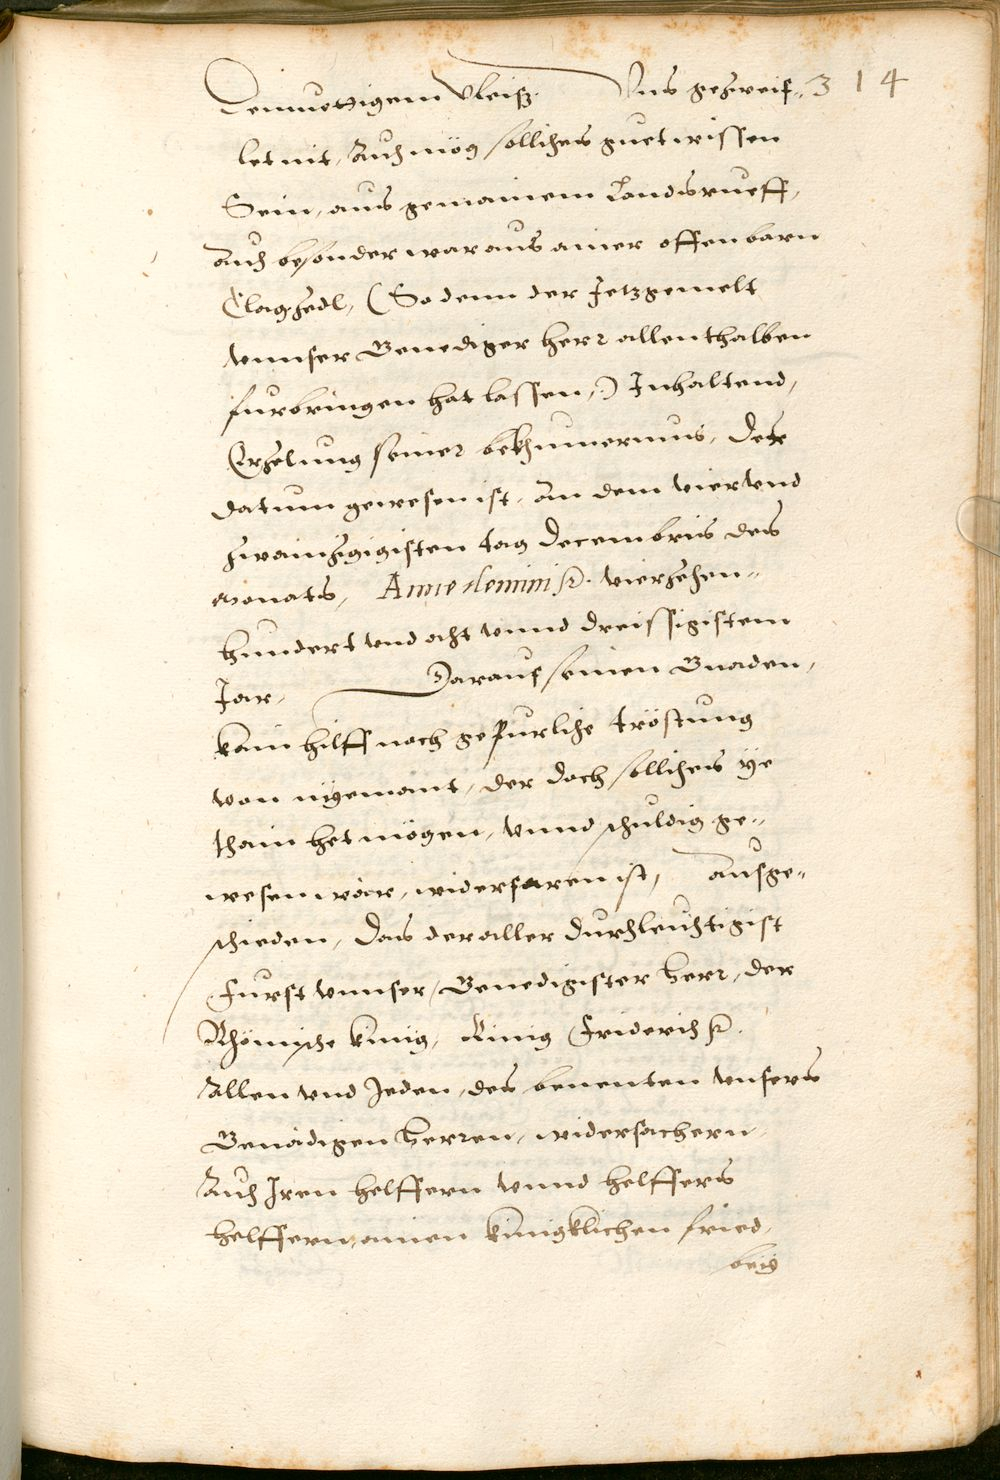 314
Demuettigem vleiß. Uns gezweif-
let nit, Auch mög sollichs guet wissen
Sein, aus gemainem Landsrueff,
Auch besonder war aus ainer offenbarn
Clagzedl, (So denn der Jetzgemelt
vnnser Genediger herr allenthalben
furbringen hat lassen,) Inhaltend,
Erzelung seiner bekhumernus, Des
datum gewesen ist, An dem vier vnd
zwainzigisten tag Decembris des
monats, Anno domini etc. vierzehen-
hundert vnd acht vnnd dreissigistem
Jar, Darauf seinen Gnaden,
kain hilff noch gepurliche tröstung
von nyemant, der doch sollichs ye
thain het mögen, vnnd schuldig ge-
wesen wär, widerfaren ist, Ausge-
schieden, Das der aller durchleuchtigist
Furst vnnser Genedigister herr, der
Rhömische künig, Künig Friderich etc.
Allen vnd Jeden, des benenten vnsers
Genädigen herren, widersachern
Auch Iren helffern vnnd helffers
helffern, ainen künigklichen fried,
bey